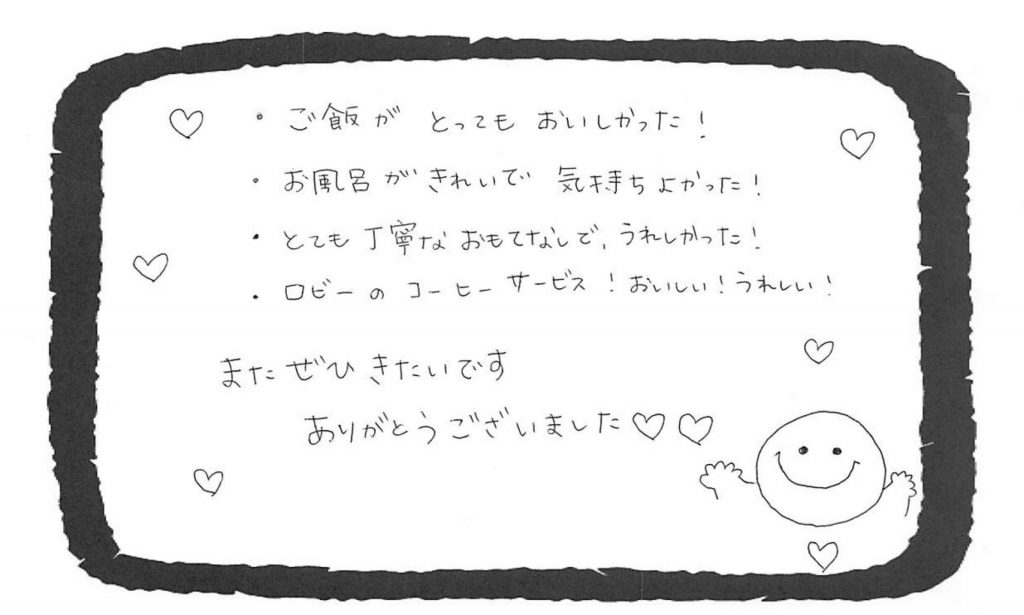 ・ご飯が とっても おいしかった!
・お風呂が きれいで 気持ちよかった!
・とても 丁寧な おもてなしで、うれしかった!
・ロビーの コーヒーサービス!おいしい!うれしい!
また ぜひ きたいです
ありがとうございました♡♡